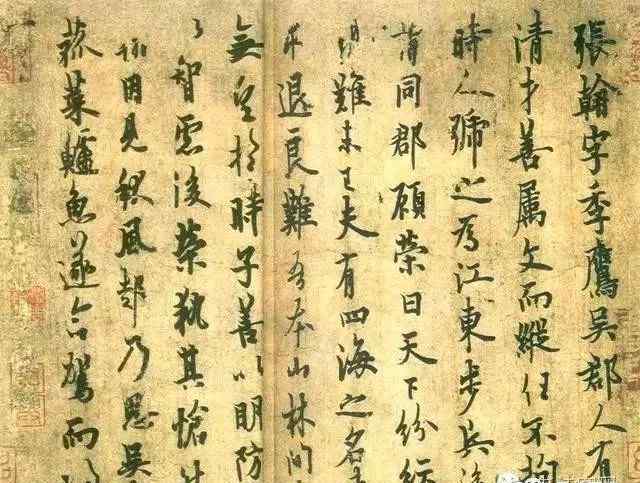 張翰字季鷹吳郡人有
清才善属文而縱任不拘
時人號之為江東步兵後
同郡顧榮曰天下紛紜
難未已夫有四海之名
求退良難吾本山林間
無望於時子善以明防
智慮後榮執其愴
因見秋風起乃思吳
菰菜鱸魚遂命駕而